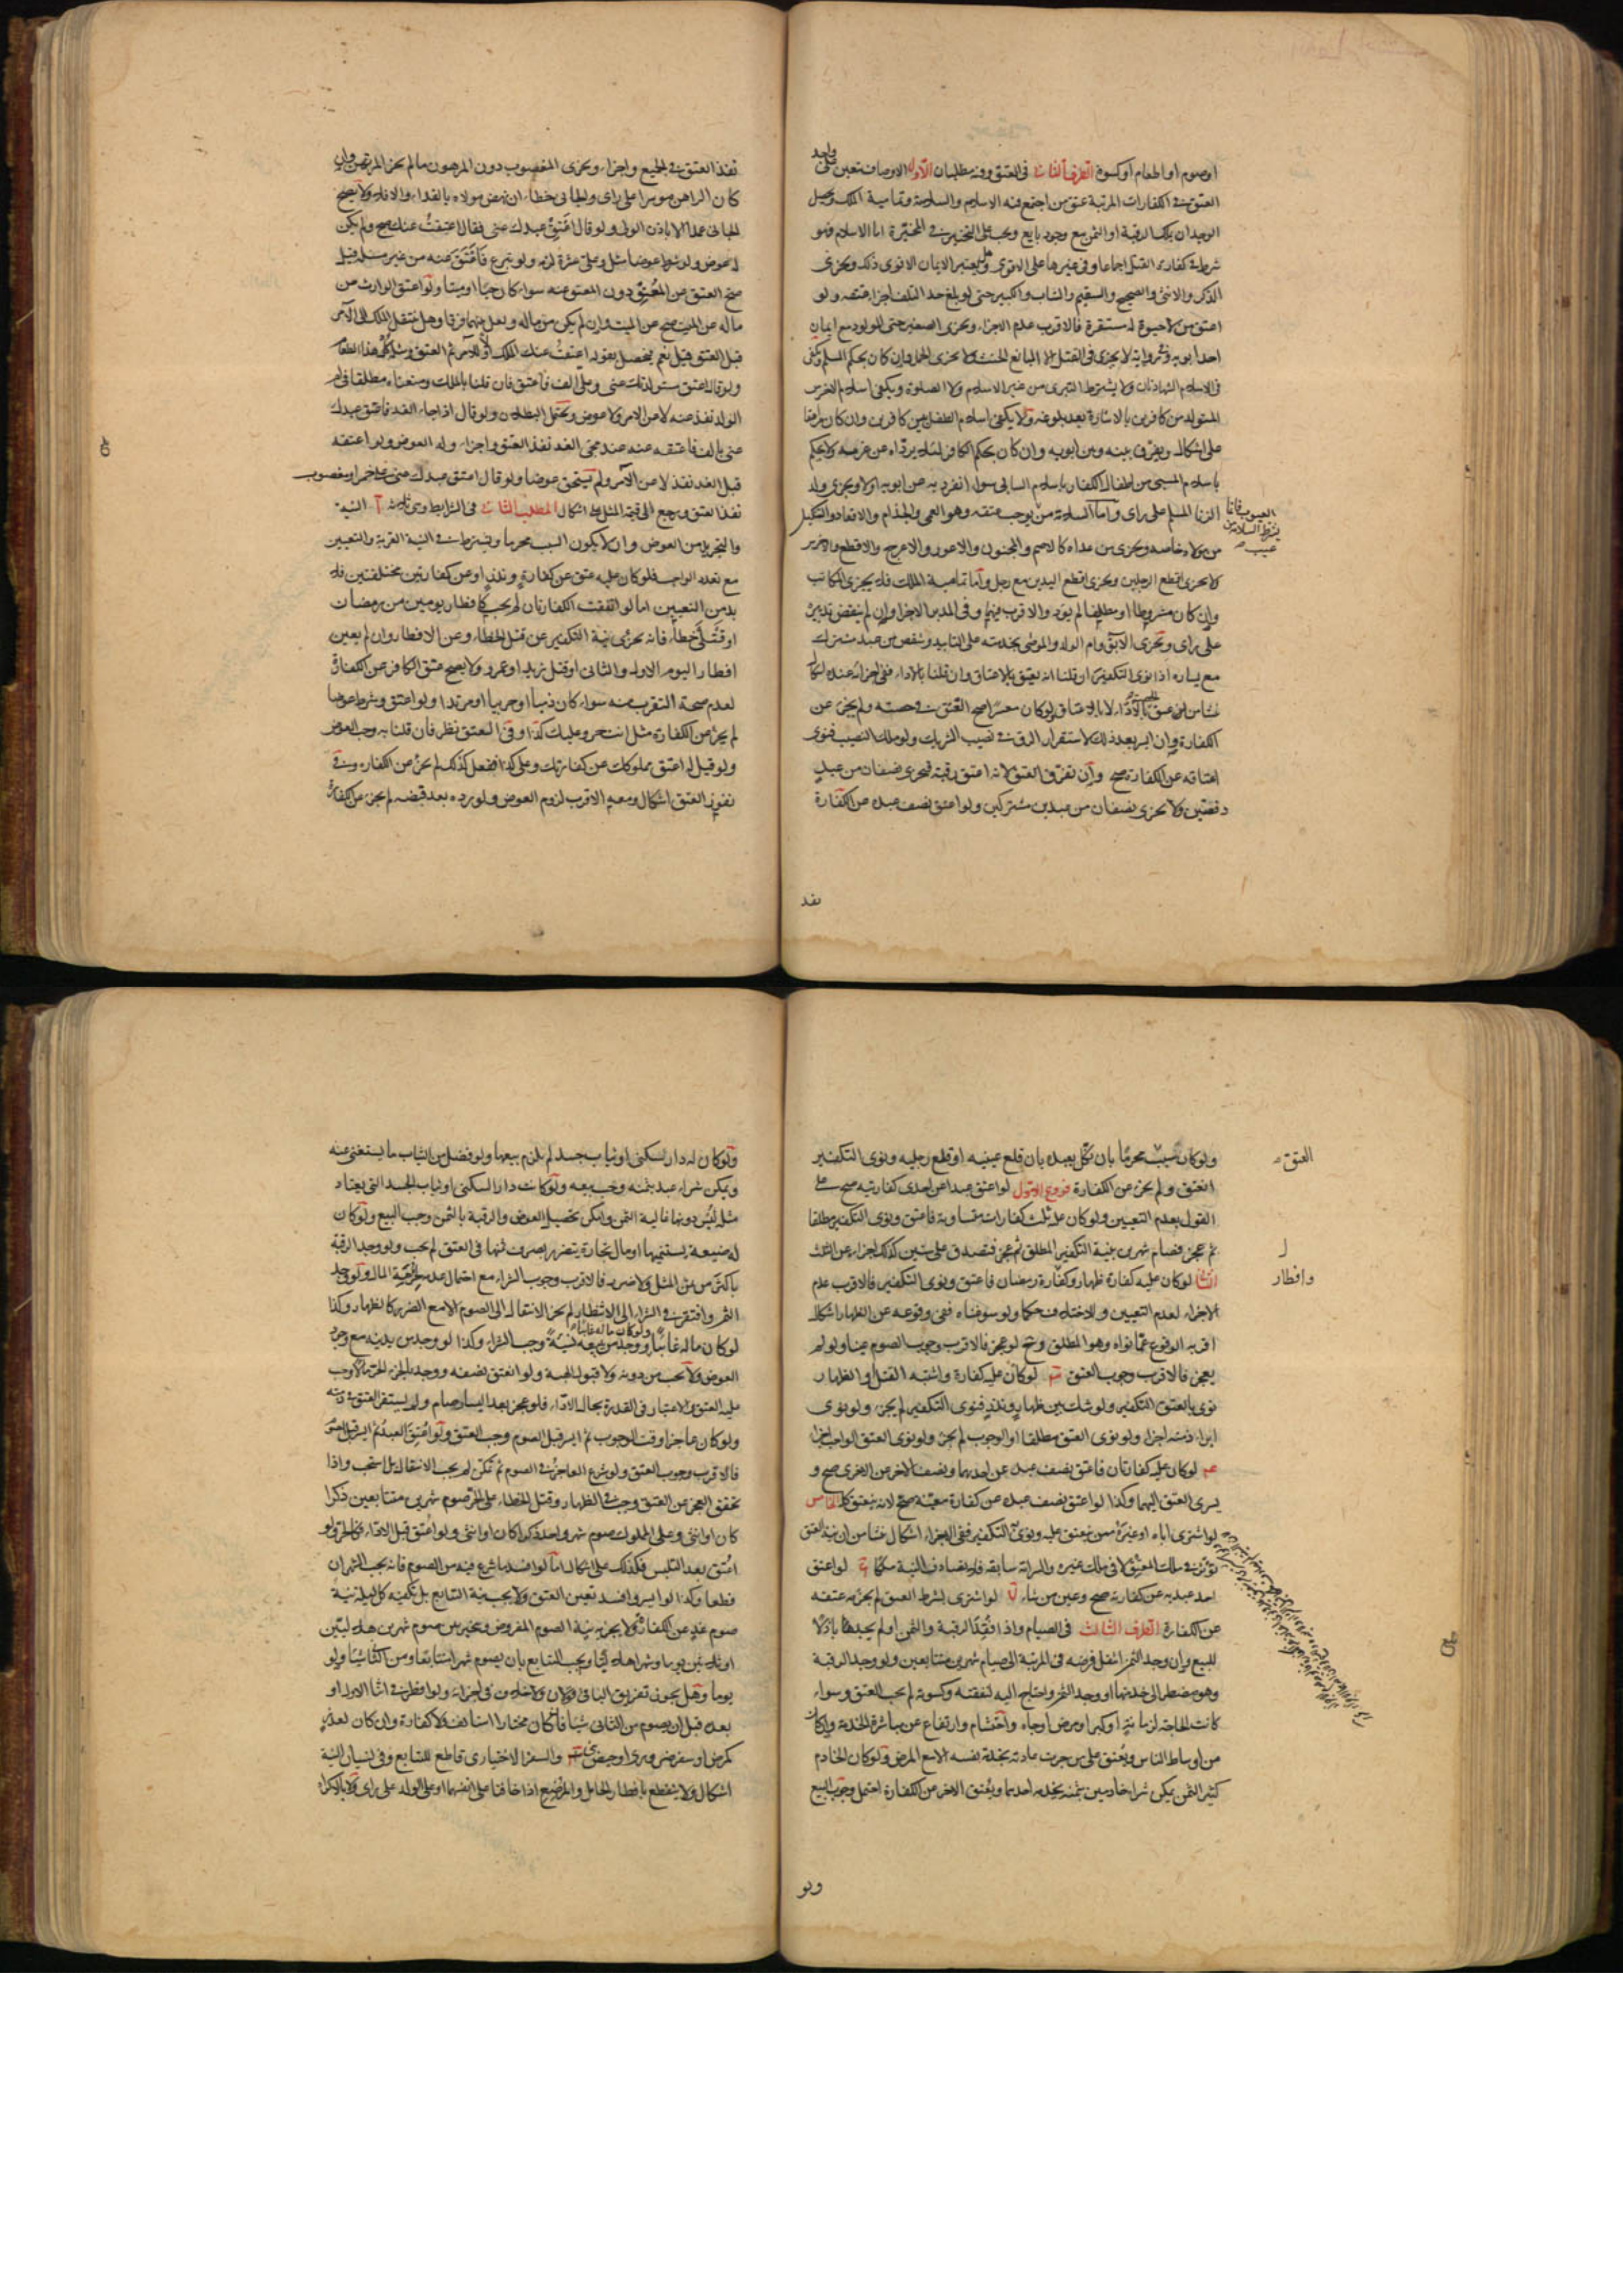 او صوم او اطعام او كسوة الطرف الثانى فى العتق وفيه مطلبان الاول الاوصاف يتعين على واجد
العتق فى الكفارات المرتبة عتق من اجتمع فيه الاسلام والسلامة وتمامية الملك ويحصل
الوجدان بملك الرقبة او الثمن مع وجود بايع ويجب على التخيير فى المخيرة اما الاسلام فهو
شرط فى كفارة القتل اجماعا وفى غيرها على الاقوى وهل يعتبر الايمان الاقوى ذلك ويجزى
الذكر والانثى والصحيح والسقيم والشاب والكبير حتى لو بلغ حد التلف اجزأ عتقه ولو
اعتق من لا حيوة له مستقرة فالاقرب عدم الاجزاء ويجزى الصغير حتى المولود مع ايمان
احد ابويه وفى رواية لا يجزى فى القتل الا البالغ الحنث ولا يجزى الحمل وان كان بحكم المسلم ويكفى
فى الاسلام الشهادتان ولا يشترط التبرى من غير الاسلام ولا الصلوة ويكفى اسلام الاخرس
المتولد من كافرين بالاشارة بعد بلوغه ولا يكفى اسلام الطفل بين كافرين وان كان مراهقا
على اشكال ويفرق بينه وبين ابويه وان كان بحكم الكافر لئلا يرداه عن عزمه ولا يحكم
باسلام المسبى من اطفال الكفار باسلام السابى سواء انفرد به عن ابويه او لا ويجزى ولد
الزنا المسلم على راى واما السلامة من يوجب عتقه وهو العمى والجذام والاقعاد والتنكيل
العيوب فانما
يشترط السلامة من
عيب
من مولاه خاصة ويجزى من عداه كالاصم والمجنون والاعور والاعرج والاقطع والاخرس
ولا يجزى اقطع الرجلين ويجزى اقطع اليدين مع رجل واما تمامية الملك فلا يجزى المكاتب
وان كان مشروطا او مطلقا لم يؤد والاقرب فيهما وفى المدبر الاجزاء وان لم ينقض تدبيره
على راى ويجزى الآبق وام الولد والموصى بخدمته على التابيد وشقص من عبد مشترك
مع يساره اذا نوى التكفير ان قلنا انه يعتق بالاعتاق وان قلنا بالاداء ففى اجزائه عنده اشكال
ولو كان معسرا صح العتق فى حصته ولم يجز عن
الكفارة وان ايسر بعد ذلك لاستقرار الرق فى نصيب الشريك ولو ملك النصيب فنوى
اعتاقه عن الكفارة صح وان تفرق العتق لانه اعتق رقبة فيجزى نصفان من عبد
دفعتين ولا يجزى نصفان من عبدين مشتركين ولو اعتق نصف عبده عن الكفارة
نفذ
نفذ العتق فى الجميع واجزأ ويجزى المغصوب دون المرهون ما لم يجز المرتهن وان
كان الراهن موسرا على راى والجانى خطأ ان نهض مولاه بالفداء والا فلا ولا يصح
الجانى عمدا الا باذن الولى ولو قال اعتق عبدك عنى فقال اعتقت عنك صح ولم يكن
له عوض ولو شرط عوضا مثل وعلى عشرة لزمه ولو تبرع فاعتق عنه من غير مسئلة قيل
صح العتق عن المعتق دون المعتق عنه سواء كان حيا او ميتا ولو اعتق الوارث من
ماله عن الميت صح عن الميت وان لم يكن من ماله ولعل بينهما فرقا وهل ينتقل الملك الى الآمر
قبل العتق قيل نعم يحصل بقوله اعتقت عنك الملك اولا للآمر ثم العتق ومثله كل هذا الطعام
ولو قال اعتق مستولدتك عنى وعلى الف فاعتق فان قلنا بالملك ومنعناه مطلقا فى ام
الولد نفذ عنه لا عن الآمر ولا عوض ويحتمل البطلان ولو قال اذا جاء الغد فاعتق عبدك
عنى بالف فاعتقه عنه عند مجى الغد نفذ العتق واجزأ وله العوض ولو اعتقه
قبل الغد نفذ لا عن الآمر ولم يستحق عوضا ولو قال اعتق عبدك عنى على خمر او مغصوب
نفذ العتق ويرجع الى قيمة المثل على اشكال المطلب الثانى فى الشرايط وهى ثلاثة ا النية
والتجريد من العوض وان لا يكون السبب محرما ويشترط فى النية القربة والتعيين
مع تعدد الواجب فلو كان عليه عتق عن كفارة ونذر او عن كفارتين مختلفتين فلا
بد من التعيين اما لو اتفقت الكفارتان لم يجب كافطار يومين من رمضان
او قتلى خطأ فانه يجزى نية التكفير عن قتل الخطاء وعن الافطار وان لم يعين
افطار اليوم الاول والثانى او قتل زيد او عمرو ولا يصح عتق الكافر عن الكفارة
لعدم صحة التقرب منه سواء كان ذميا او حربيا او مرتدا ولو اعتق وشرط عوضا
لم يجز عن الكفارة مثل انت حر وعليك كذا وفى العتق نظر فان قلنا به وجب العوض
ولو قيل له اعتق مملوكك عن كفارتك وعلى كذا ففعل كذلك لم يجز عن الكفارة وفى
نفوذ العتق اشكال ومعه الاقرب لزوم العوض ولو رده بعد قبضه لم يجز عن الكفارة
ولو كان سببه محرما بان نكل بعبده بان قلع عينيه او قطع رجليه ونوى التكفير
العتق
انعتق ولم يجز عن الكفارة فروع الاول لو اعتق عبدا عن احدى كفارتيه صح على
القول بعدم التعيين ولو كان عليه ثلث كفارات متساوية فاعتق ونوى التكفير مطلقا
ثم عجز فصام شهرين بنية التكفير المطلق ثم عجز فتصدق على ستين كذلك اجزأ عن الثلث
الثانى لو كان عليه كفارة ظهار وكفارة رمضان فاعتق ونوى التكفير فالاقرب عدم
وافطار
الاجزاء لعدم التعيين ولاختلافهما حكما ولو سوغناه ففى وقوعه عن الظهار اشكال
اقربه الوقوع عما نواه وهو المطلق وح لو عجز فالاقرب وجوب الصوم عينا ولو لم
يعجز فالاقرب وجوب العتق لو كان عليه كفارة واشتبه القتل او الظهار
نوى بالعتق التكفير ولو شك بين ظهار ونذر فنوى التكفير لم يجز ولو نوى
ابراء ذمته اجزأ ولو نوى العتق مطلقا او الوجوب لم يجز ولو نوى العتق الواجب اجزأ
لو كان عليه كفارتان فاعتق نصف عبد عن احديهما ونصف الآخر عن الاخرى صح و
يسرى العتق اليهما وكذا لو اعتق نصف عبده عن كفارة معينة صح لانه ينعتق كله الخامس
لو اشترى اباه او غيره ممن ينعتق عليه ونوى التكفير ففى الاجزاء اشكال ينشأ من ان نية العتق
تؤثر فى ملك المعتق لا فى ملك غيره والسراية سابقة فلا يصادف النية ملكا لو اعتق
احد عبديه عن كفارته صح وعين من شاء لو اشترى بشرط العتق لم يجزئه عتقه
عن الكفارة الطرف الثالث فى الصيام واذا فقد الرقبة والثمن او لم يجدها باذلا
للبيع وان وجد الثمن انتقل فرضه فى المرتبة الى صيام شهرين متتابعين ولو وجد الرقبة
وهو مضطر الى خدمتها او وجد الثمن واحتاج اليه لنفقته وكسوته لم يجب العتق وسواء
كانت الحاجة لزمانة او كبر او مرض او جاه واحتشام وارتفاع عن مباشرة الخدمة وان كان
من اوساط الناس ويعتق على من جرت عادته بخدمة نفسه الا مع المرض ولو كان الخادم
كثير الثمن يمكن شراء خادمين بثمنه يخدمه احدهما ويعتق الآخر عن الكفارة احتمل وجوب البيع
ولو
ولو كان له دار لسكنى او ثياب جسد لم يلزم بيعها ولو فضل من الثياب ما يستغنى عنه
ويمكن شراء عبد بثمنه وجب بيعه ولو كانت دار السكنى او ثياب الجسد التى يعتاد
مثله لبس دونها غالية الثمن وامكن تحصيل العوض والرقبة بالثمن وجب البيع ولو كان
له ضيعة يستنميها او مال تجارة يتضرر بصرف ثمنها فى العتق لم يجب ولو وجد الرقبة
باكثر من ثمن المثل ولا ضرر فالاقرب وجوب الشراء مع احتمال عدمه لحرمة المال ولو وجد
الثمن وافتقر فى الشراء الى الانتظار لم يجز الانتقال الى الصوم الا مع الضرر كالظهار وكذا
لو كان ماله غائبا ولو وجد من يبيعه نسيئة وجب الشراء وكذا لو وجد من يدينه مع وجود
العوض ولا يجب من دونه ولا قبول الهبة ولو انعتق نصفه ووجد بالجزء الحر مالا وجب
عليه العتق والاعتبار فى القدرة بحال الاداء فلو عجز بعد اليسار صام ولم يستقر العتق فى ذمته
ولو كان عاجزا وقت الوجوب ثم ايسر قبل الصوم وجب العتق ولو اعتق العبد ثم ايسر قبل الصوم
فالاقرب وجوب العتق ولو شرع العاجز فى الصوم ثم تمكن لم يجب الانتقال بل يستحب واذا
تحقق العجز عن العتق وجب فى الظهار وقتل الخطاء على الحر صوم شهرين متتابعين ذكرا
كان او انثى وعلى المملوك صوم شهر واحد ذكرا كان او انثى ولو اعتق قبل الاداء فكالحر ولو
اعتق بعد التلبس فكذلك على اشكال اما لو افسد ما شرع فيه من الصوم فانه يجب الشهران
قطعا وكذا لو ايسر وافسد تعين العتق ولا يجب نية التتابع بل تكفيه كل ليلة نية
صوم غد عن الكفارة ولا يجزيه نية الصوم المفروض ويتخير بين صوم شهرين هلاليين
او ثلاثين يوما وشهرا هلاليا ويجب التتابع بان يصوم شهرا متتابعا ومن الثانى شيئا ولو
يوما وهل يجوز تفريق الباقى قولان ولا خلاف فى اجزائه ولو افطر فى اثناء الاول او
بعده قبل ان يصوم من الثانى شيئا فان كان مختارا استانف ولا كفارة وان كان لعذر
كمرض او سفر ضرورى او حيض بنى والسفر الاختيارى قاطع للتتابع وفى نسيان النية
اشكال ولا ينقطع بافطار الحامل والمرضع اذا خافتا على انفسهما او على الولد على راى ولا بالاكراه